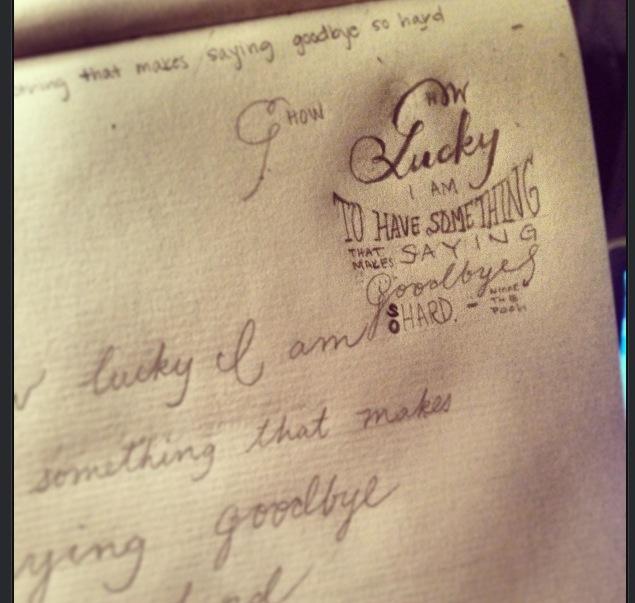 that makes saying goodbye so hard
HOW
HOW
Lucky
I AM
TO HAVE SOMETHING
THAT MAKES SAYING
Goodbye
SO HARD. - WINNIE THE Pooh
lucky I am
something that makes
ying goodbye